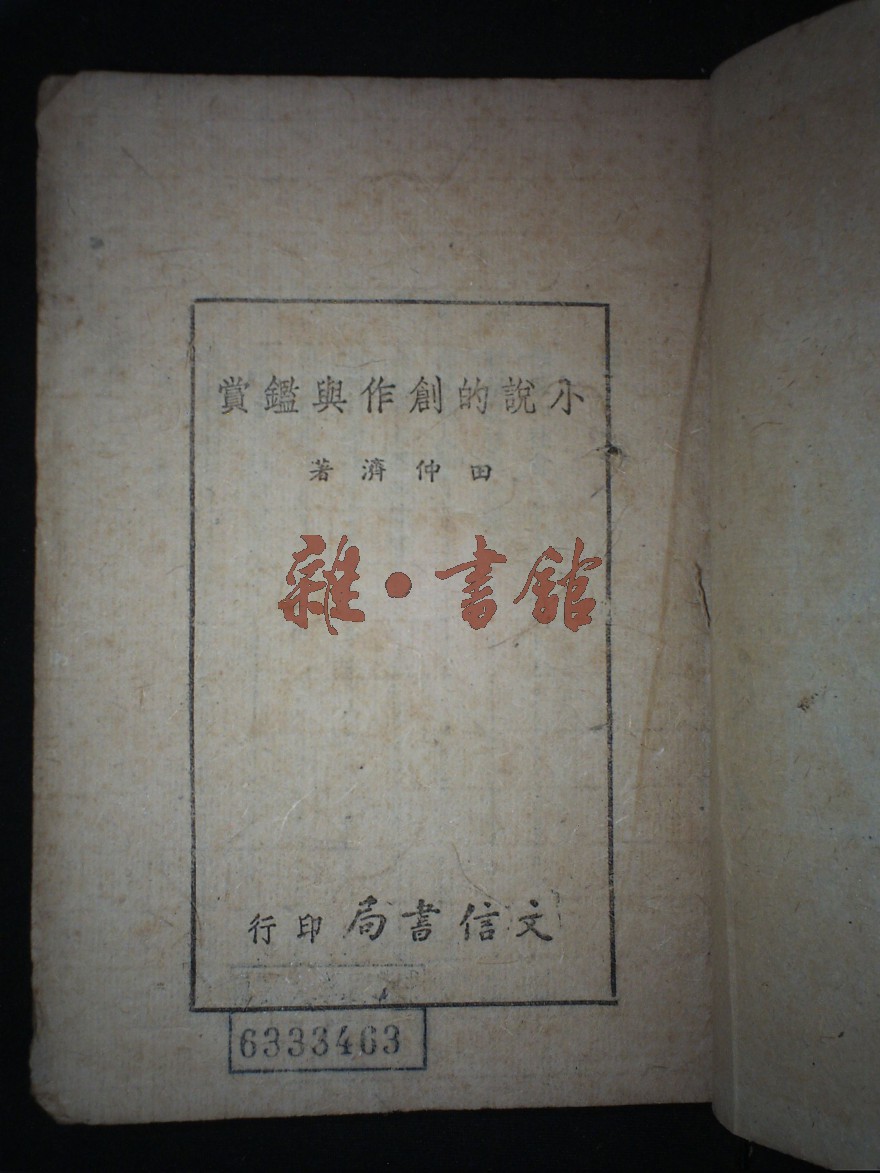 小說的創作與鑑賞
田仲濟著
雜·書館
文信書局印行
6333463